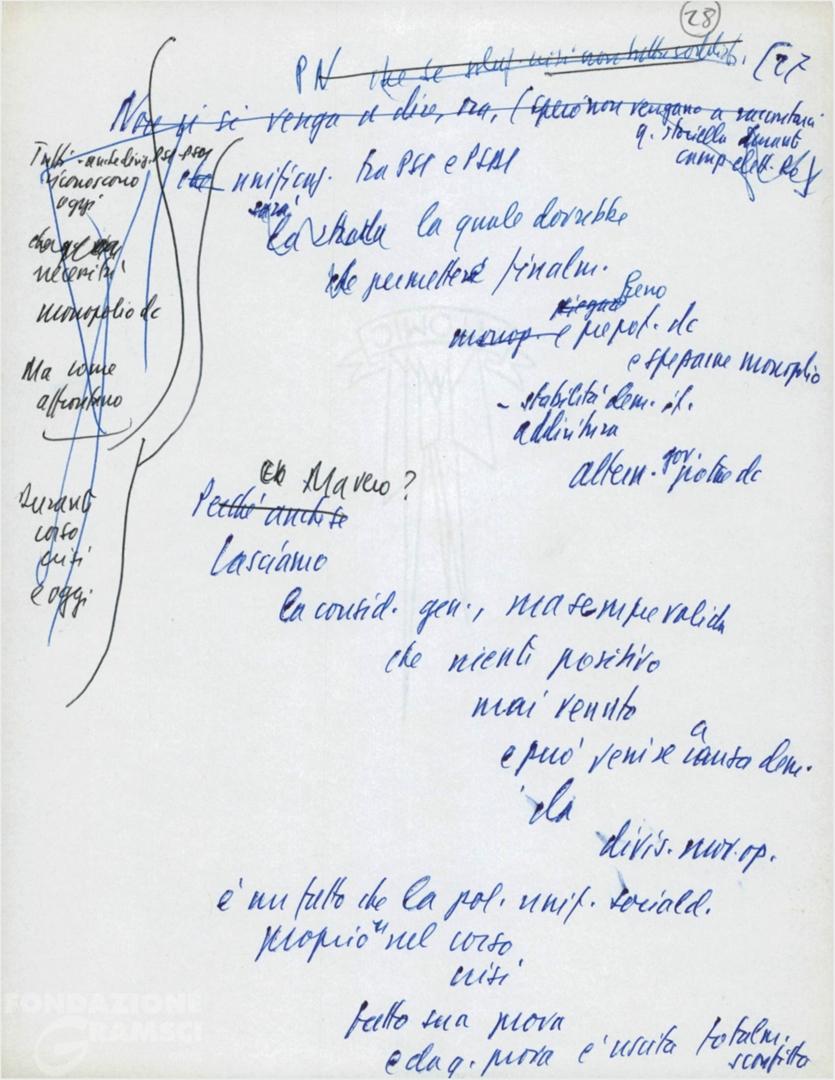 28
PN che se soluz. crisi non tutta soddisfa. [27
Non ci si venga a dire, ora, (spero non vengano a raccontarci
q. storiella durante
camp. elett.
Tutti - anche dirig. PSI-PSDI
riconoscono
oggi
che unificaz. tra PSI e PSDI
sarà
la strada la quale dovrebbe
necessità
che permetterà finalm.
monopolio dc
freno
monop. e prepot. dc
e spezzarne monopolio
Ma come
affrontano
- stabilità dem. it.
addirittura
altern. gov. potere dc
Ma vero?
Durante
corso
crisi
e oggi
Perché anche se
lasciamo
la consid. gen., ma sempre valida
che niente positivo
mai venuto
e può venire a causa dem.
da
divis. mov. op.
è un fatto che la pol. unif. sociald.
proprio nel corso
crisi
fatto sua prova
e da q. prova è uscita totalm.
sconfitta
FONDAZIONE
GRAMSCI